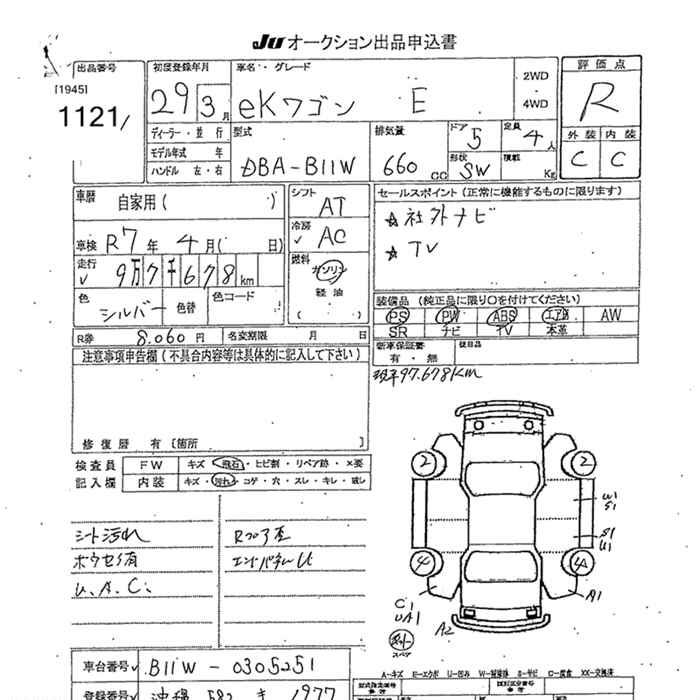 JU オークション出品申込書
出品番号
[1945]
1121
初度登録年月
29 3月
ディーラー・並行
モデル年式 年
ハンドル 左・右
車名・グレード
eKワゴン E
2WD
4WD
型式
DBA-B11W
排気量
660 CC
ドア
5
形状
SW
定員
4人
積載
Kg
評価点
R
外装 内装
C C
車歴
自家用( )
車検 R7年 4月( 日)
走行
9万7千678km
色
シルバー
色替
色コード
シフト
AT
冷房
AC
燃料
ガソリン
軽油
( )
セールスポイント(正常に機能するものに限ります)
☆社外ナビ
☆TV
装備品(純正品に限り○を付けてください)
PS PW ABS エア漸 AW
SR ナビ TV 本革
新車保証書
有・無
R券 8.060円 名変期限 月 日
注意事項申告欄(不具合内容等は具体的に記入して下さい)
97.678Km
修復歴 有〔箇所 〕
検査員
記入欄
FW キズ・飛石・ヒビ割・リペア跡・X要
内装 キズ・汚れ・コゲ・穴・スレ・キレ・破し
シート汚れ
ボウセイ有
U.A.C.
Rフロア歪
エンドパネルU
2
2
U1
S1
S1
U1
4
4
C1
UA1
A2
A1
スペア
A-キズ E-エクボ U-凹み S-サビ C-腐食 XX-交換済
車台番号 B11W-0305251
登録番号 沖縄 582 き 1977